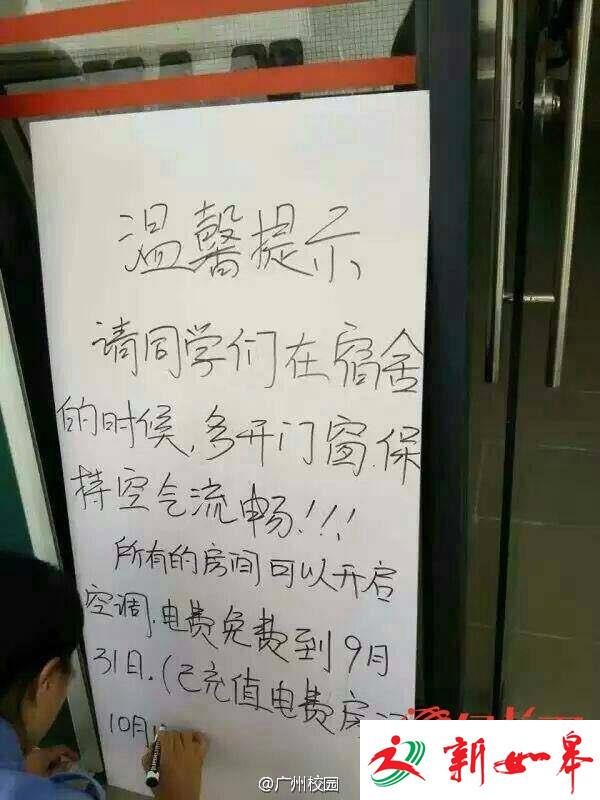 温馨提示
请同学们在宿舍
的时候,多开门窗.保
持空气流畅!!!
所有的房间可以开启
空调.电费免费到9月
31日.(已充值电费房
10月
@广州校园
新如皋